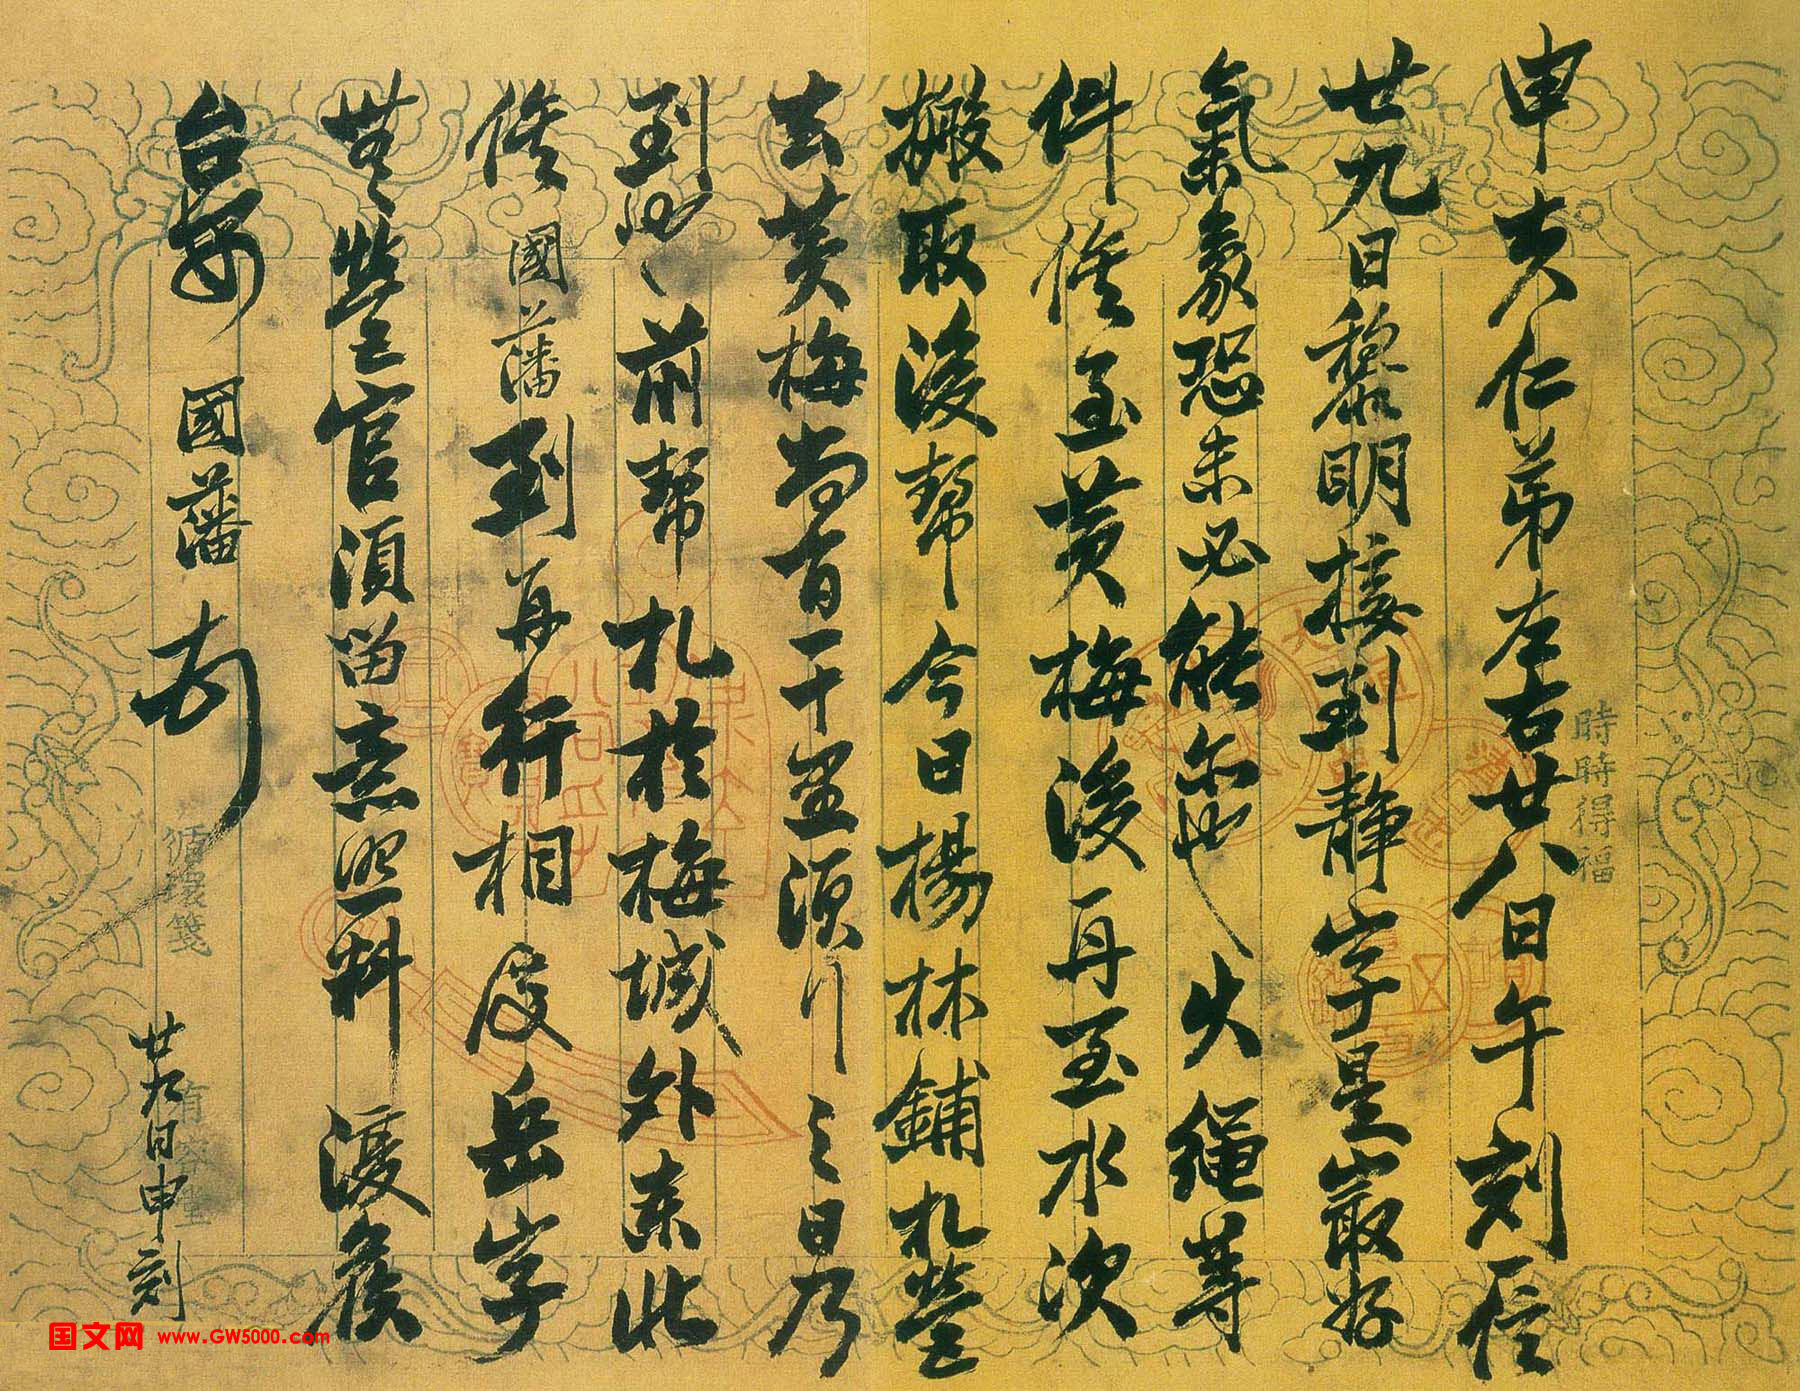 申夫仁弟左右廿八日午刻信
廿九日黎明接到靜字是最好
氣象恐未必能尔也火繩等
件俟至黃梅後再至水次
搬取後幫今日楊林鋪札營
去黃梅尚百一十里須行三日乃
到也前幫札於梅城外東北
俟國藩到再行相度岳字
營官須留意照料復候
台安 國藩 頓
廿九日申刻
時時得福
循環箋
國文网 www.GW5000.com